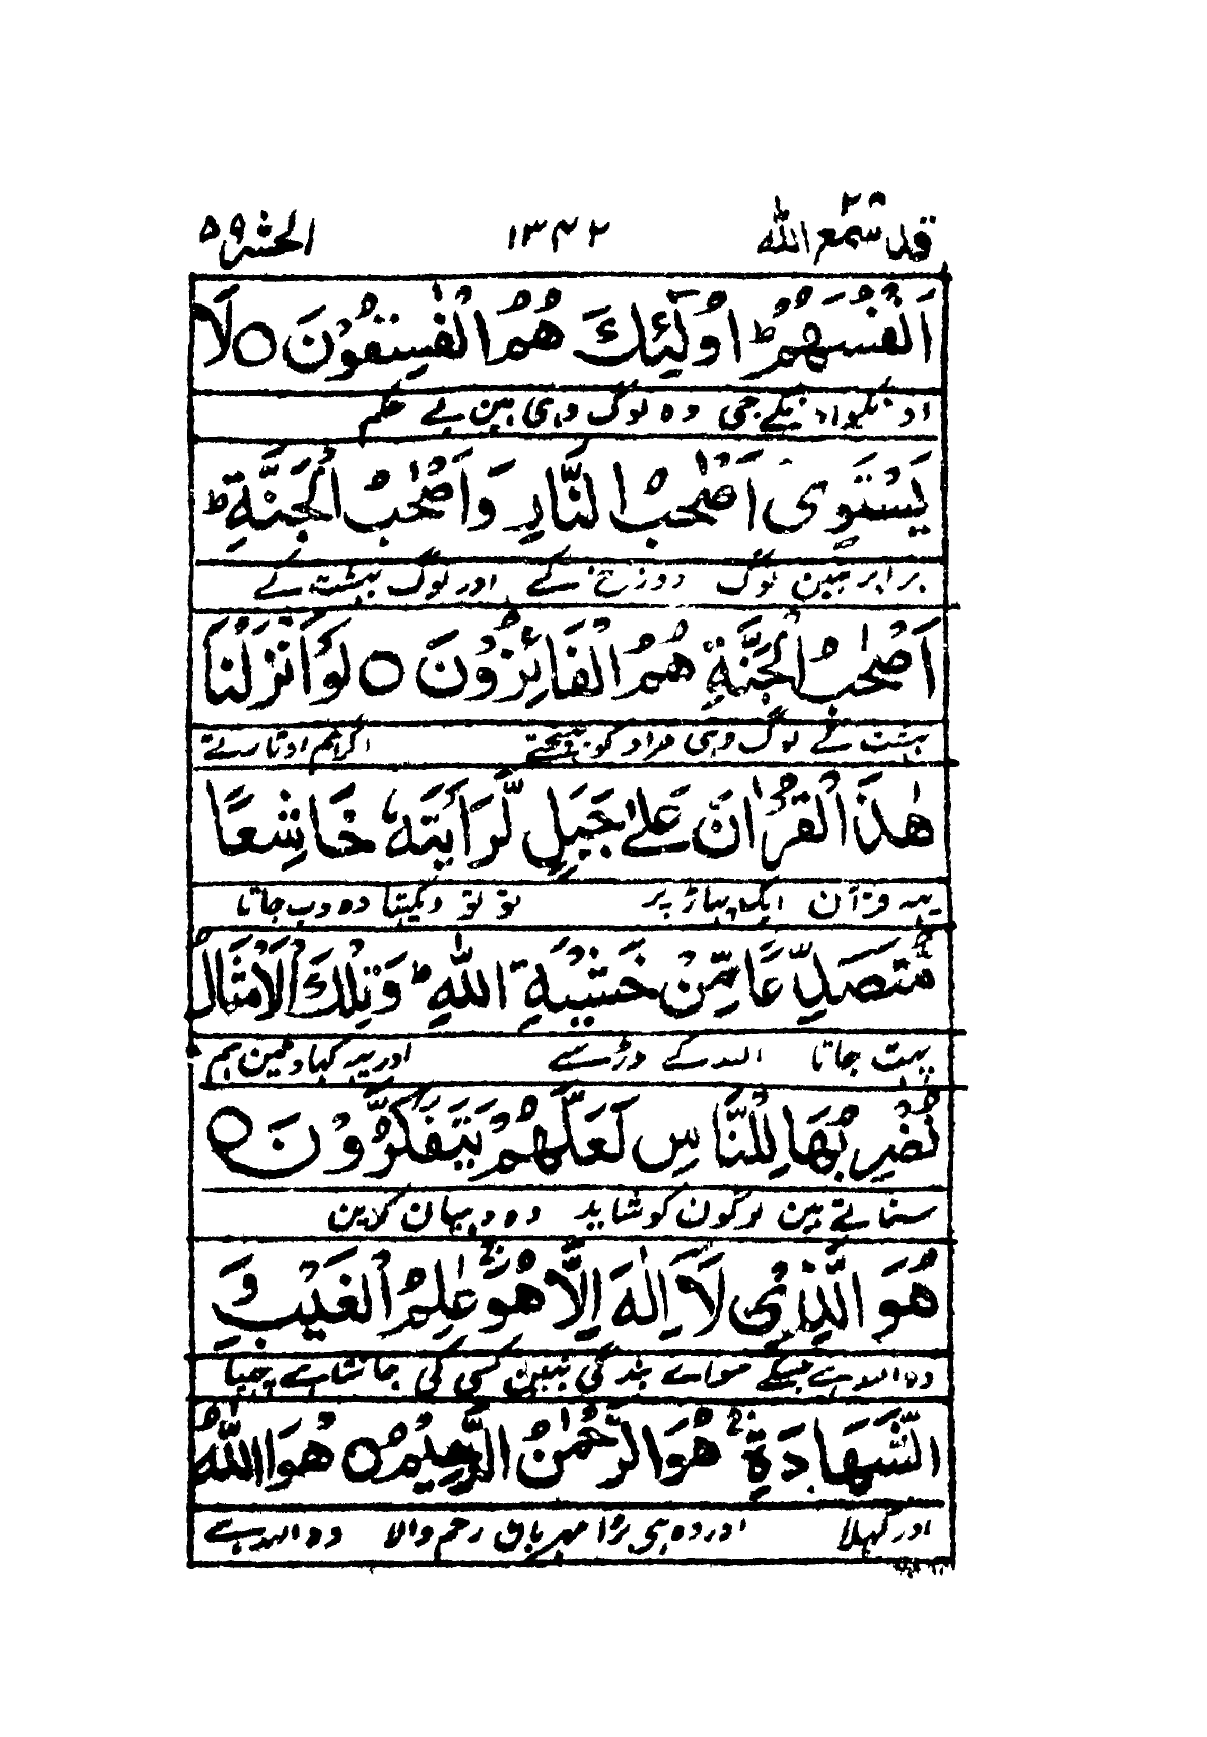 قد سمع الله ٢٨ ١٣٤٢ الحشر ٥٩
اَنْفُسَهُمْ ؕ اُولٰٓئِكَ هُمُ الْفٰسِقُوْنَ ○ لَا
اونکو اونکے جی وہ لوگ وہی ہین بے حکم
يَسْتَوِىْٓ اَصْحٰبُ النَّارِ وَاَصْحٰبُ الْجَنَّةِ ؕ
برابر نہین لوگ دوزخ کے اور لوگ بہشت کے
اَصْحٰبُ الْجَنَّةِ هُمُ الْفَائِزُوْنَ ○ لَوْ اَنْزَلْنَا
بہشت کے لوگ وہی مراد کو پہنچے اگر ہم اوتارتے
هٰذَا الْقُرْاٰنَ عَلٰے جَبَلٍ لَّرَاَيْتَهٗ خَاشِعًا
یہہ قرآن ایک پہاڑ پر تو تو دیکہتا وہ دب جاتا
مُّتَصَدِّعًا مِّنْ خَشْيَةِ اللّٰهِ ؕ وَتِلْكَ الْاَمْثَالُ
پہٹ جاتا اللہ کے ڈر سے اور یہہ کہاوتین ہم
نَضْرِبُهَا لِلنَّاسِ لَعَلَّهُمْ يَتَفَكَّرُوْنَ ○
سناتے ہین لوگون کو شاید وہ دہیان کرین
هُوَ الَّذِىْ لَآ اِلٰهَ اِلَّا هُوَ ۚ عٰلِمُ الْغَيْبِ وَ
وہ اللہ ہے جسکے سواے بندگی نہین کسی کی جانتا ہے چہپا
الشَّهَادَةِ ۚ هُوَ الرَّحْمٰنُ الرَّحِيْمُ ○ هُوَ اللّٰهُ
اور کہلا اور وہ ہی بڑا مہربان رحم والا وہ اللہ ہے